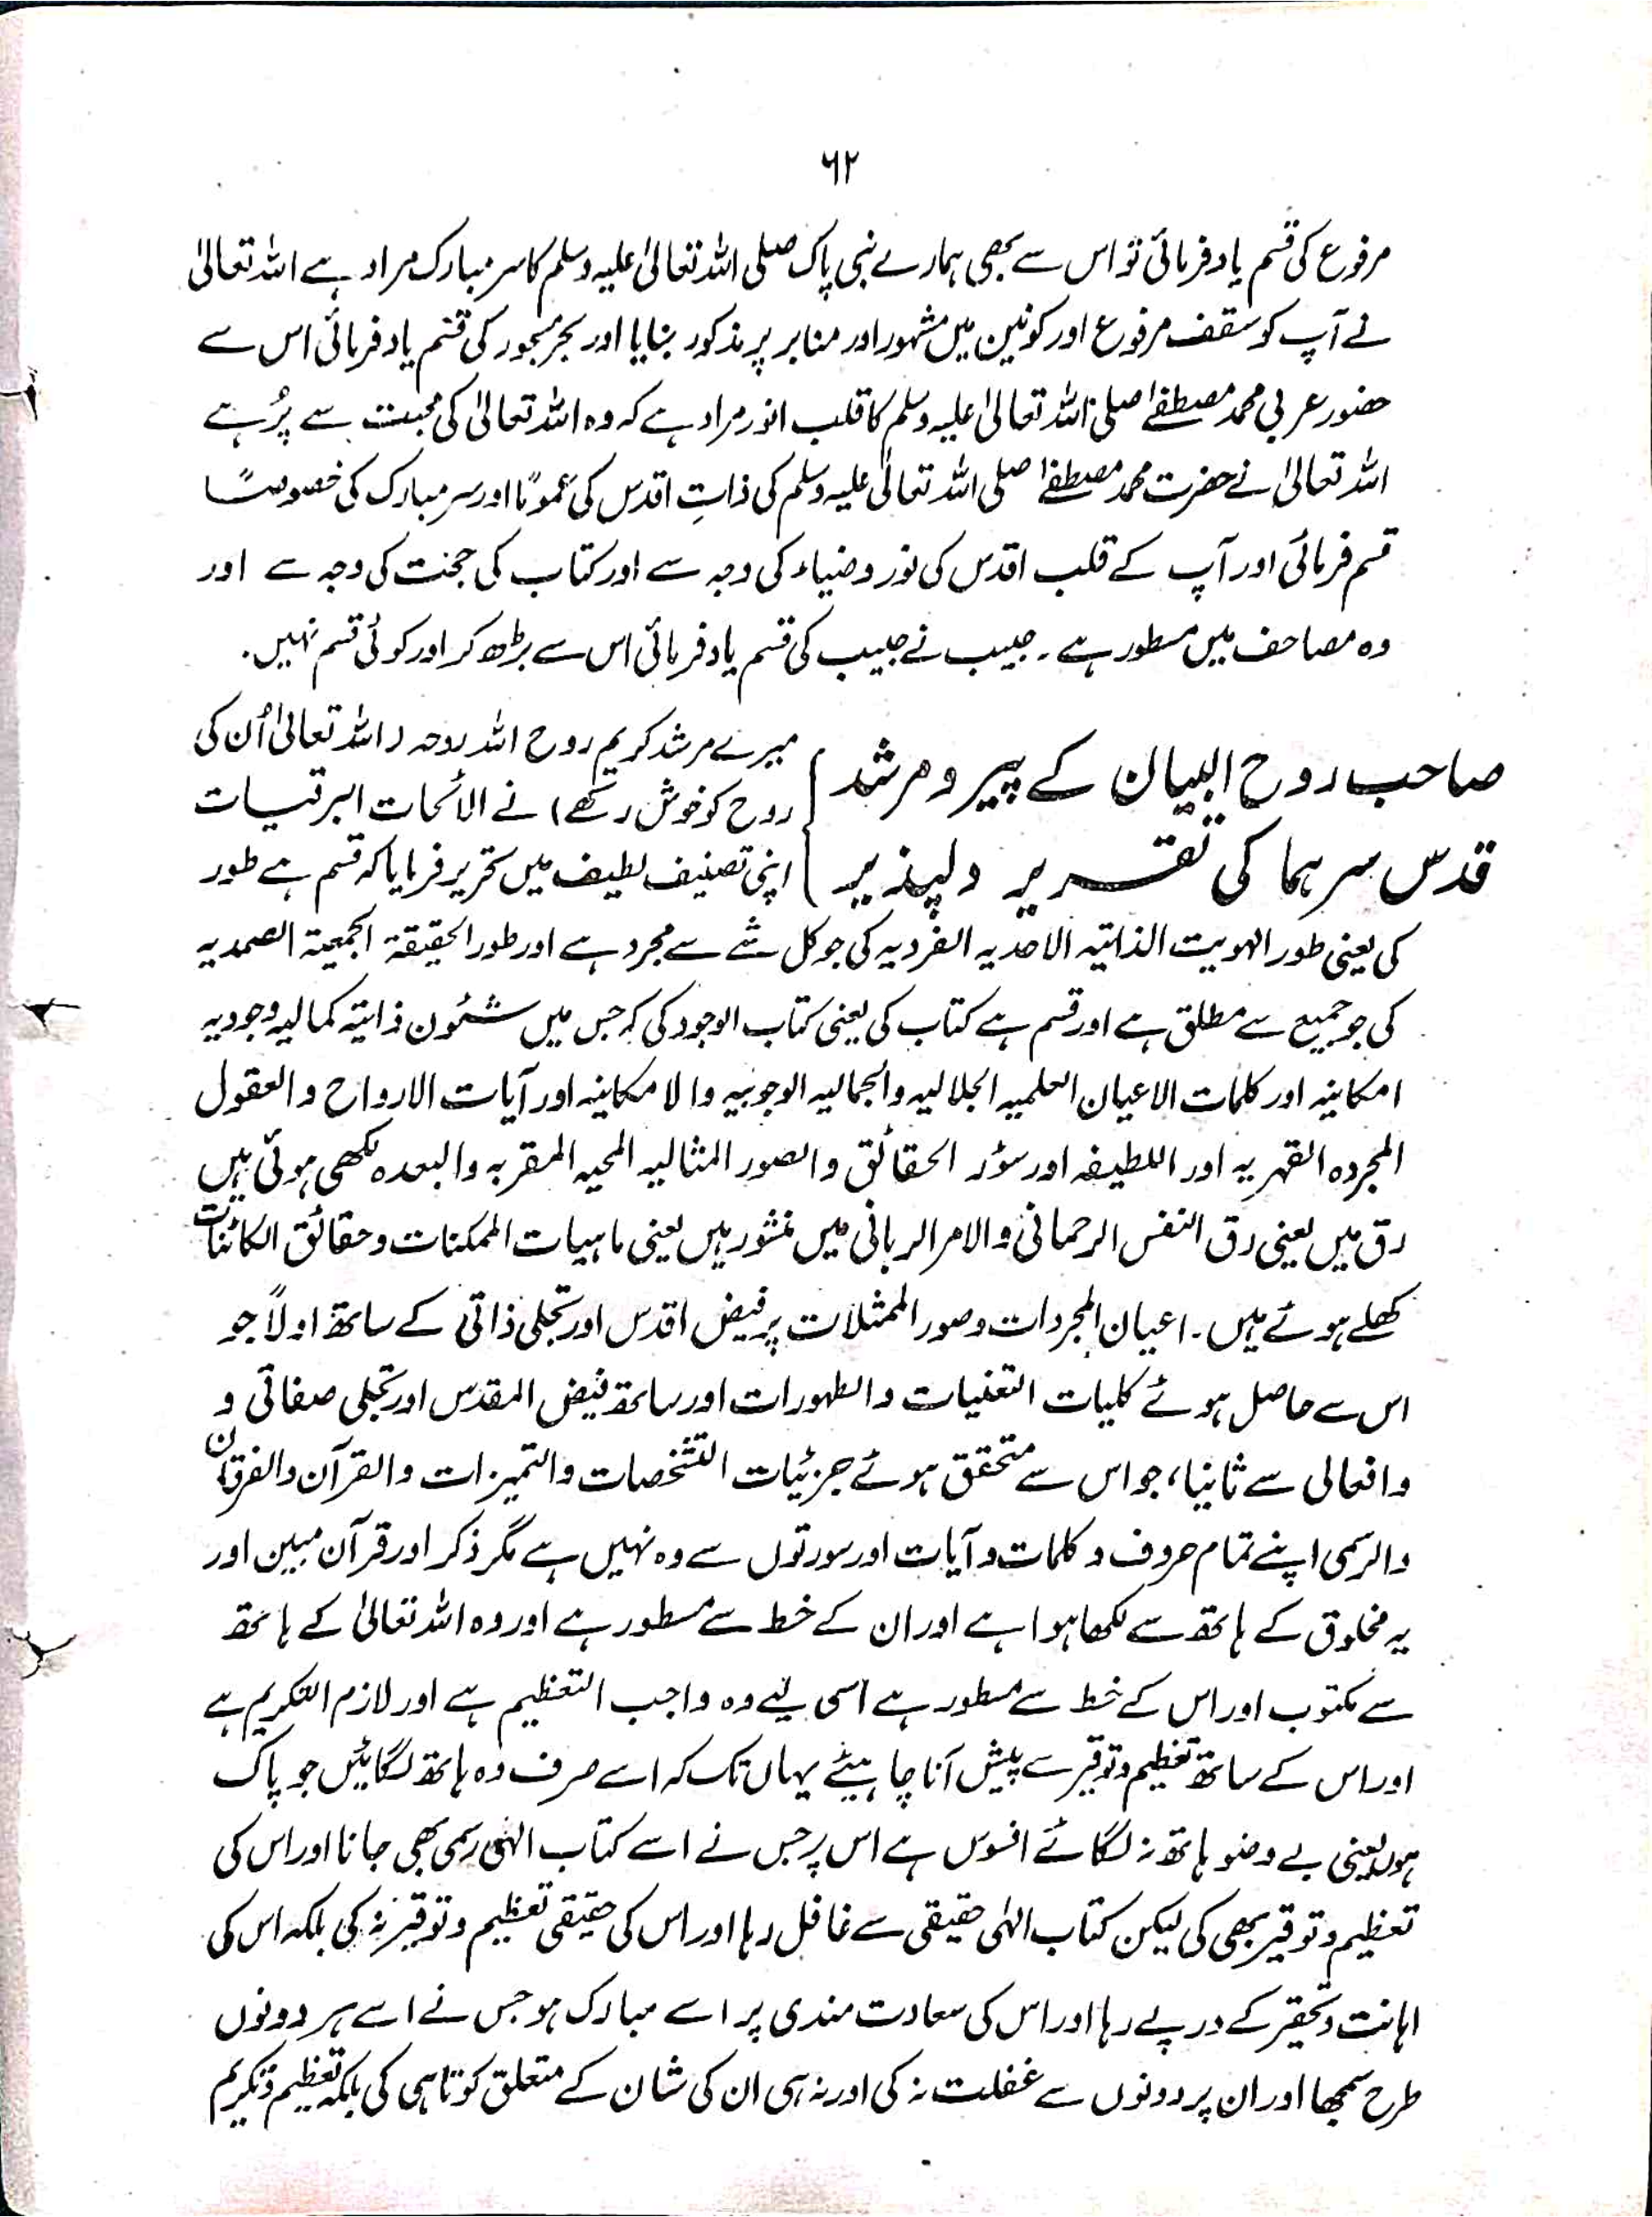 ۶۲
مرفوع کی قسم یاد فرمائی تو اس سے بھی ہمارے نبی پاک صلی اللہ تعالیٰ علیہ وسلم کا سر مبارک مراد ہے اللہ تعالیٰ
نے آپ کو سقف مرفوع اور کونین میں مشہور اور منابر پر مذکور بنایا اور بحر مسجور کی قسم یاد فرمائی اس سے
حضور عربی محمد مصطفےٰ صلی اللہ تعالیٰ علیہ وسلم کا قلب انور مراد ہے کہ وہ اللہ تعالیٰ کی محبت سے پُر ہے
اللہ تعالیٰ نے حضرت محمد مصطفےٰ صلی اللہ تعالیٰ علیہ وسلم کی ذاتِ اقدس کی عموماً اور سر مبارک کی خصوصاً
قسم فرمائی اور آپ کے قلب اقدس کی نور و ضیاء کی وجہ سے اور کتاب کی حجت کی وجہ سے اور
وہ مصاحف میں مسطور ہے ۔ حبیب نے حبیب کی قسم یاد فرمائی اس سے بڑھ کر اور کوئی قسم نہیں ۔
صاحب روح البیان کے پیر و مرشد
قدس سرہما کی تقریر دلپذیر
میرے مرشد کریم روح اللہ روحہ (اللہ تعالیٰ اُن کی
روح کو خوش رکھے) نے الائحات البرقیات
اپنی تصنیف لطیف میں تحریر فرمایا کہ قسم ہے طور
کی یعنی طور الہویت الذاتیہ الاحدیہ الفردیہ کی جو کل شے سے مجرد ہے اور طور الحقیقۃ الجمعیۃ الصمدیہ
کی جو جمیع سے مطلق ہے اور قسم ہے کتاب کی یعنی کتاب الوجود کی کہ جس میں شئون ذاتیہ کمالیہ وجودیہ
امکانیہ اور کلمات الاعیان العلمیہ الجلالیہ والجمالیہ الوجوبیہ والا مکانیہ اور آیات الارواح والعقول
المجردہ القہریہ اور اللطیفہ اور سؤر الحقائق والصور المثالیہ المحیہ المقربہ والبعدہ لکھی ہوئی ہیں
رق میں یعنی رق النفس الرحمانی والامر الربانی میں منشور ہیں یعنی ماہیات الممکنات وحقائق الکائنات
کھلے ہوئے ہیں ۔ اعیان المجردات وصور الممثلات پر فیض اقدس اور تجلی ذاتی کے ساتھ اولاً جو
اس سے حاصل ہوئے کلیات التعنیات والطہورات اور ساتھ فیض المقدس اور تجلی صفاتی و
وافعالی سے ثانیا، جو اس سے متحقق ہوئے جزئیات التشخصات والتمیزات والقرآن والفرقان
والرسمی اپنے تمام حروف و کلمات و آیات اور سورتوں سے وہ نہیں ہے مگر ذکر اور قرآن مبین اور
یہ مخلوق کے ہاتھ سے لکھا ہوا ہے اور ان کے خط سے مسطور ہے اور وہ اللہ تعالیٰ کے ہاتھ
سے مکتوب اور اس کے خط سے مسطور ہے اسی لیے وہ واجب التعظیم ہے اور لازم التکریم ہے
اور اس کے ساتھ تعظیم وتوقیر سے پیش آنا چاہیئے یہاں تک کہ اسے صرف وہ ہاتھ لگائیں جو پاک
ہوں یعنی بے وضو ہاتھ نہ لگائے افسوس ہے اس پر جس نے اسے کتاب الٰہی رسمی بھی جانا اور اس کی
تعظیم وتوقیر بھی کی لیکن کتاب الہٰی حقیقی سے غافل رہا اور اس کی حقیقی تعظیم وتوقیر نہ کی بلکہ اس کی
اہانت وتحقیر کے درپے رہا اور اس کی سعادت مندی پر اسے مبارک ہو جس نے اسے ہر دونوں
طرح سمجھا اور ان پر دونوں سے غفلت نہ کی اور نہ ہی ان کی شان کے متعلق کوتاہی کی بلکہ تعظیم وتکریم